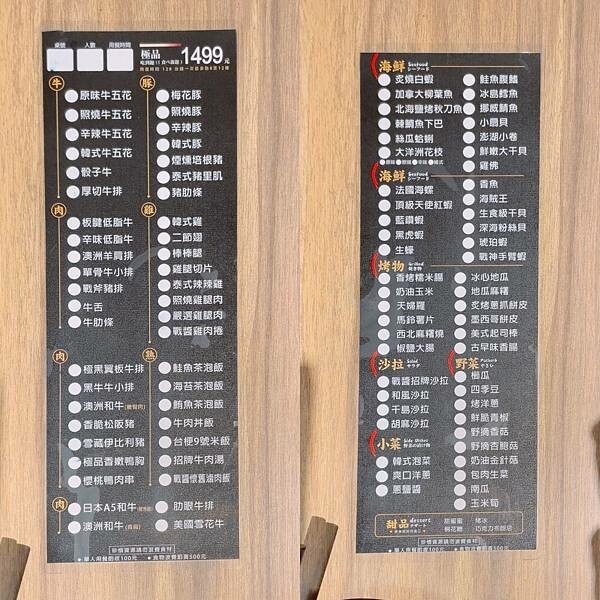 桌號 人數 用餐時間
極品
1499元
牛
原味牛五花
照燒牛五花
辛辣牛五花
韓式牛五花
骰子牛
厚切牛排
豚
梅花豚
照燒豚
辛辣豚
韓式豚
煙燻培根豬
泰式豬里肌
豬肋條
肉
板腱低脂牛
辛味低脂牛
澳洲羊肩排
單骨牛小排
戰斧豬排
牛舌
牛肋條
雞
韓式雞
二節翅
棒棒腿
雞腿切片
泰式辣辣雞
照燒雞腿肉
嚴選雞腿肉
戰醬雞肉捲
肉
極黑翼板牛排
黑牛牛小排
澳洲和牛
香脆松阪豬
雪藏伊比利豬
極品香嫩鴨胸
櫻桃鴨肉串
熟
鮭魚茶泡飯
海苔茶泡飯
鮪魚茶泡飯
牛肉丼飯
台梗9號米飯
招牌牛肉湯
戰醬懷舊滷肉飯
肉
日本A5和牛
澳洲和牛
肋眼牛排
美國雪花牛
珍惜資源請勿浪費食材
海鮮 Seafood シーフード
炙燒白蝦
加拿大柳葉魚
北海鹽烤秋刀魚
鯖鯛魚下巴
絲瓜蛤蜊
大洋洲花枝
鮭魚腹鰭
冰島鱈魚
挪威鯖魚
小扇貝
澎湖小卷
鮮嫩大干貝
雞佛
海鮮 Seafood シーフード
法國海螺
頂級天使紅蝦
藍鑽蝦
黑虎蝦
生蠔
香魚
海賊王
生食級干貝
深海粉絲貝
琥珀蝦
戰神手臂蝦
烤物 Grilled 焼き物
香烤糯米腸
奶油玉米
天婦羅
馬鈴薯片
西北麻糬燒
椒鹽大腸
冰心地瓜
地瓜麻糬
炙烤蔥抓餅皮
墨西哥餅皮
美式起司棒
古早味香腸
沙拉 Salad サラダ
戰醬招牌沙拉
和風沙拉
千島沙拉
胡麻沙拉
野菜 Potherb やさい
櫛瓜
四季豆
烤洋蔥
鮮脆青椒
野摘香菇
野摘杏鮑菇
奶油金針菇
包肉生菜
南瓜
玉米筍
小菜 Side dishes
韓式泡菜
爽口洋蔥
蔥鹽醬
甜品 dessert デザート
珍惜資源請勿浪費食材